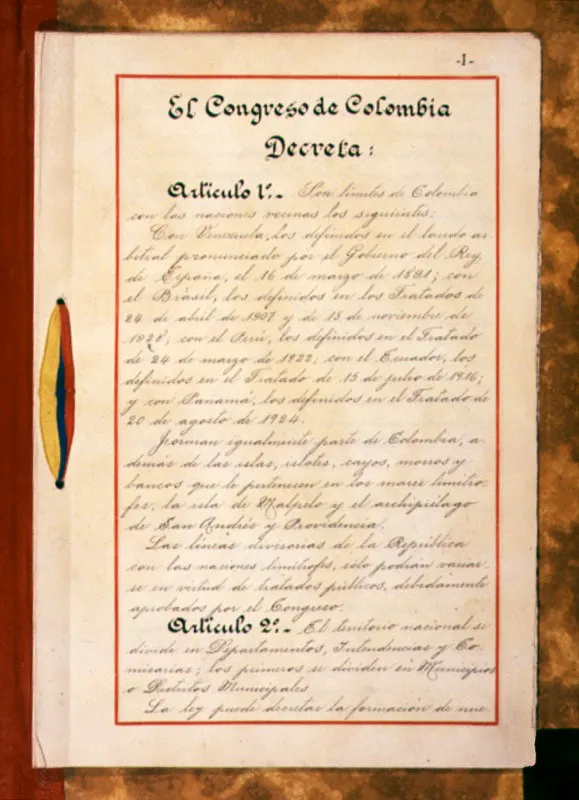 -1-
El Congreso de Colombia
Decreta:
Artículo 1º.- Son límites de Colombia
con las naciones vecinas los siguientes:
Con Venezuela, los definidos en el laudo ar
bitral pronunciado por el Gobierno del Rey
de España, el 16 de marzo de 1891; con
el Brasil, los definidos en los Tratados de
24 de abril de 1907 y de 15 de noviembre de
1928; con el Perú, los definidos en el Tratado
de 24 de marzo de 1922; con el Ecuador, los
definidos en el Tratado de 15 de julio de 1916;
y con Panamá, los definidos en el Tratado de
20 de agosto de 1924.
Forman igualmente parte de Colombia, a
demás de las islas, islotes, cayos, morros y
bancos que le pertenecen en los mares limítro
fes, la isla de Malpelo y el archipiélago
de San Andrés y Providencia.
Las líneas divisorias de la República
con las naciones limítrofes, sólo podrán variar
se en virtud de tratados públicos, debidamente
aprobados por el Congreso.
Artículo 2º.- El territorio nacional se
divide en Departamentos, Intendencias y Co-
misarías; los primeros se dividen en Municipios
o Distritos Municipales
La ley puede decretar la formación de nue